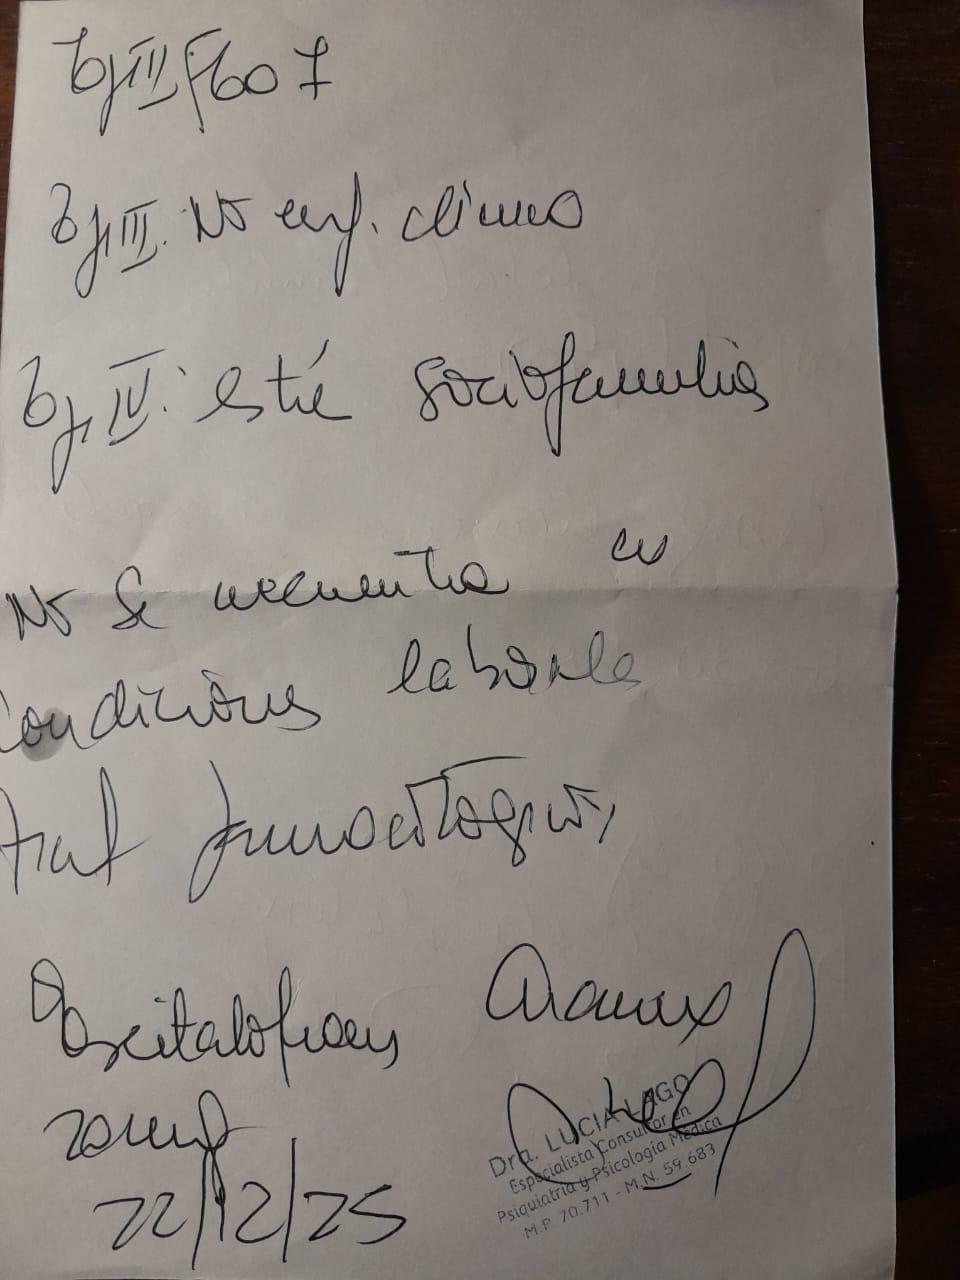 Eje II F60 7
Eje III. No enf. clinica
Eje IV: estré sociofamiliar
No se encuentra en
condiciones laborales
trat farmacologico,
Escitalopram
20 mg
22/12/25
Dra. LUCIA LAGO
Especialista Consultor en
Psiquiatría y Psicología Médica
M.P. 70.711 - M.N. 59.683